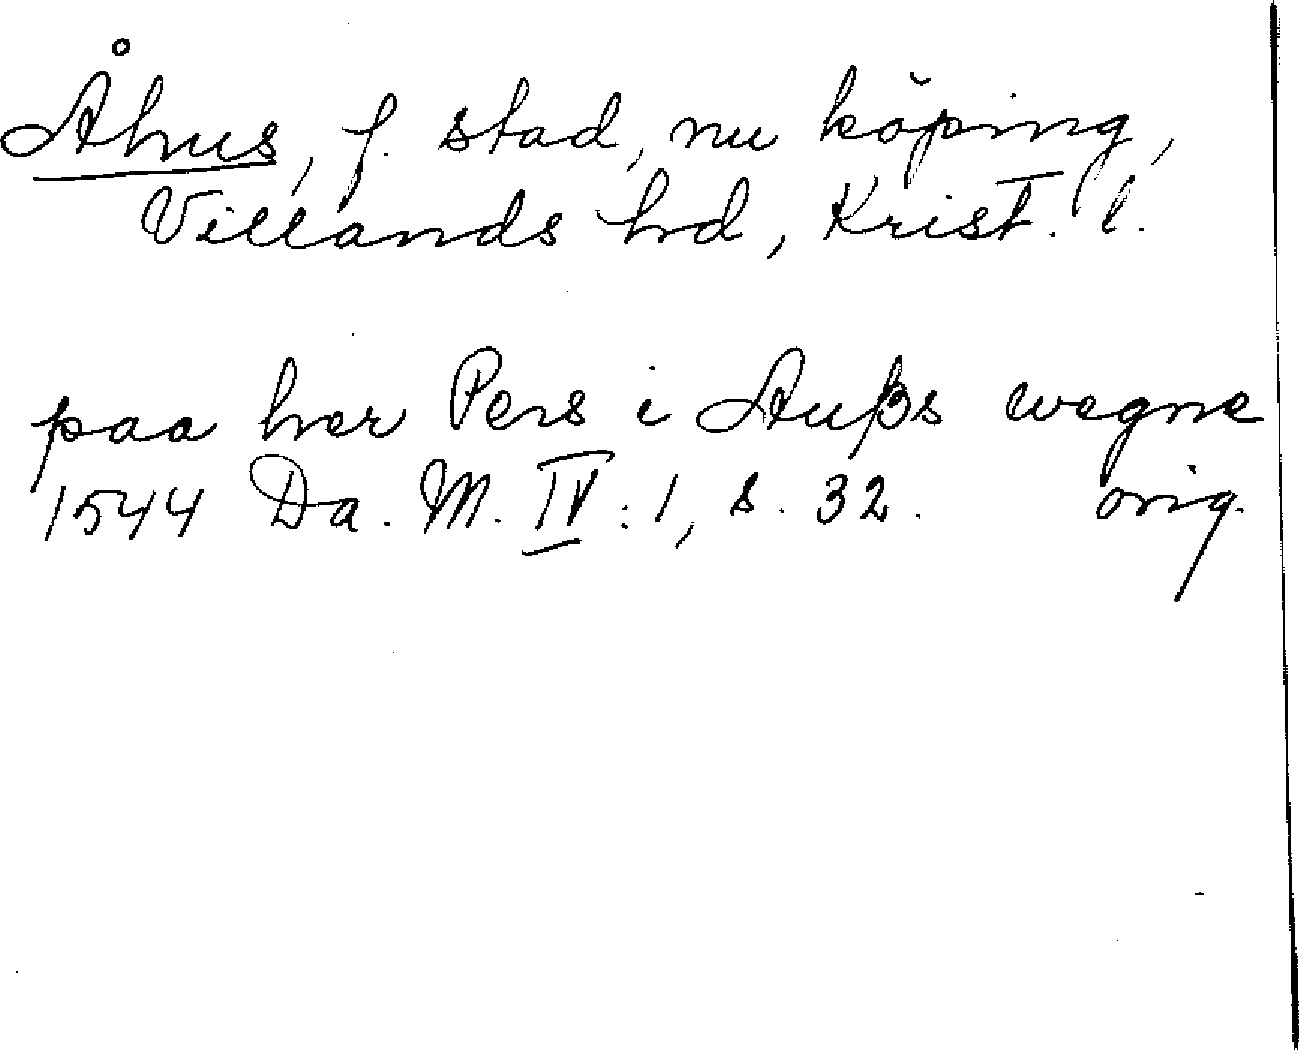 Åhus, f. stad, nu köping,
Villands hd, Krist. l.
paa her Pers i Außs wegne
1544 Da. M. IV: 1, s. 32. orig.